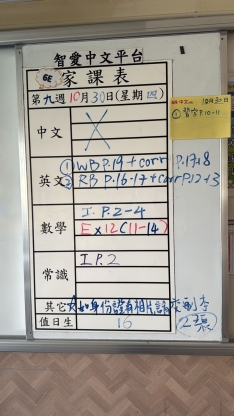 智愛中文平台
6E 家課表
第九週10月30日(星期四)
中文 X
英文 ① WB P.19 + corr P.17+18
② RB P.16-17 + corr P.12+13
數學 I. P.2-4
Ex12(11-14)
常識 I P.2
其它 如身份證有相片請交副本
2張
值日生 16
10月30日
① 習字 P.10-11